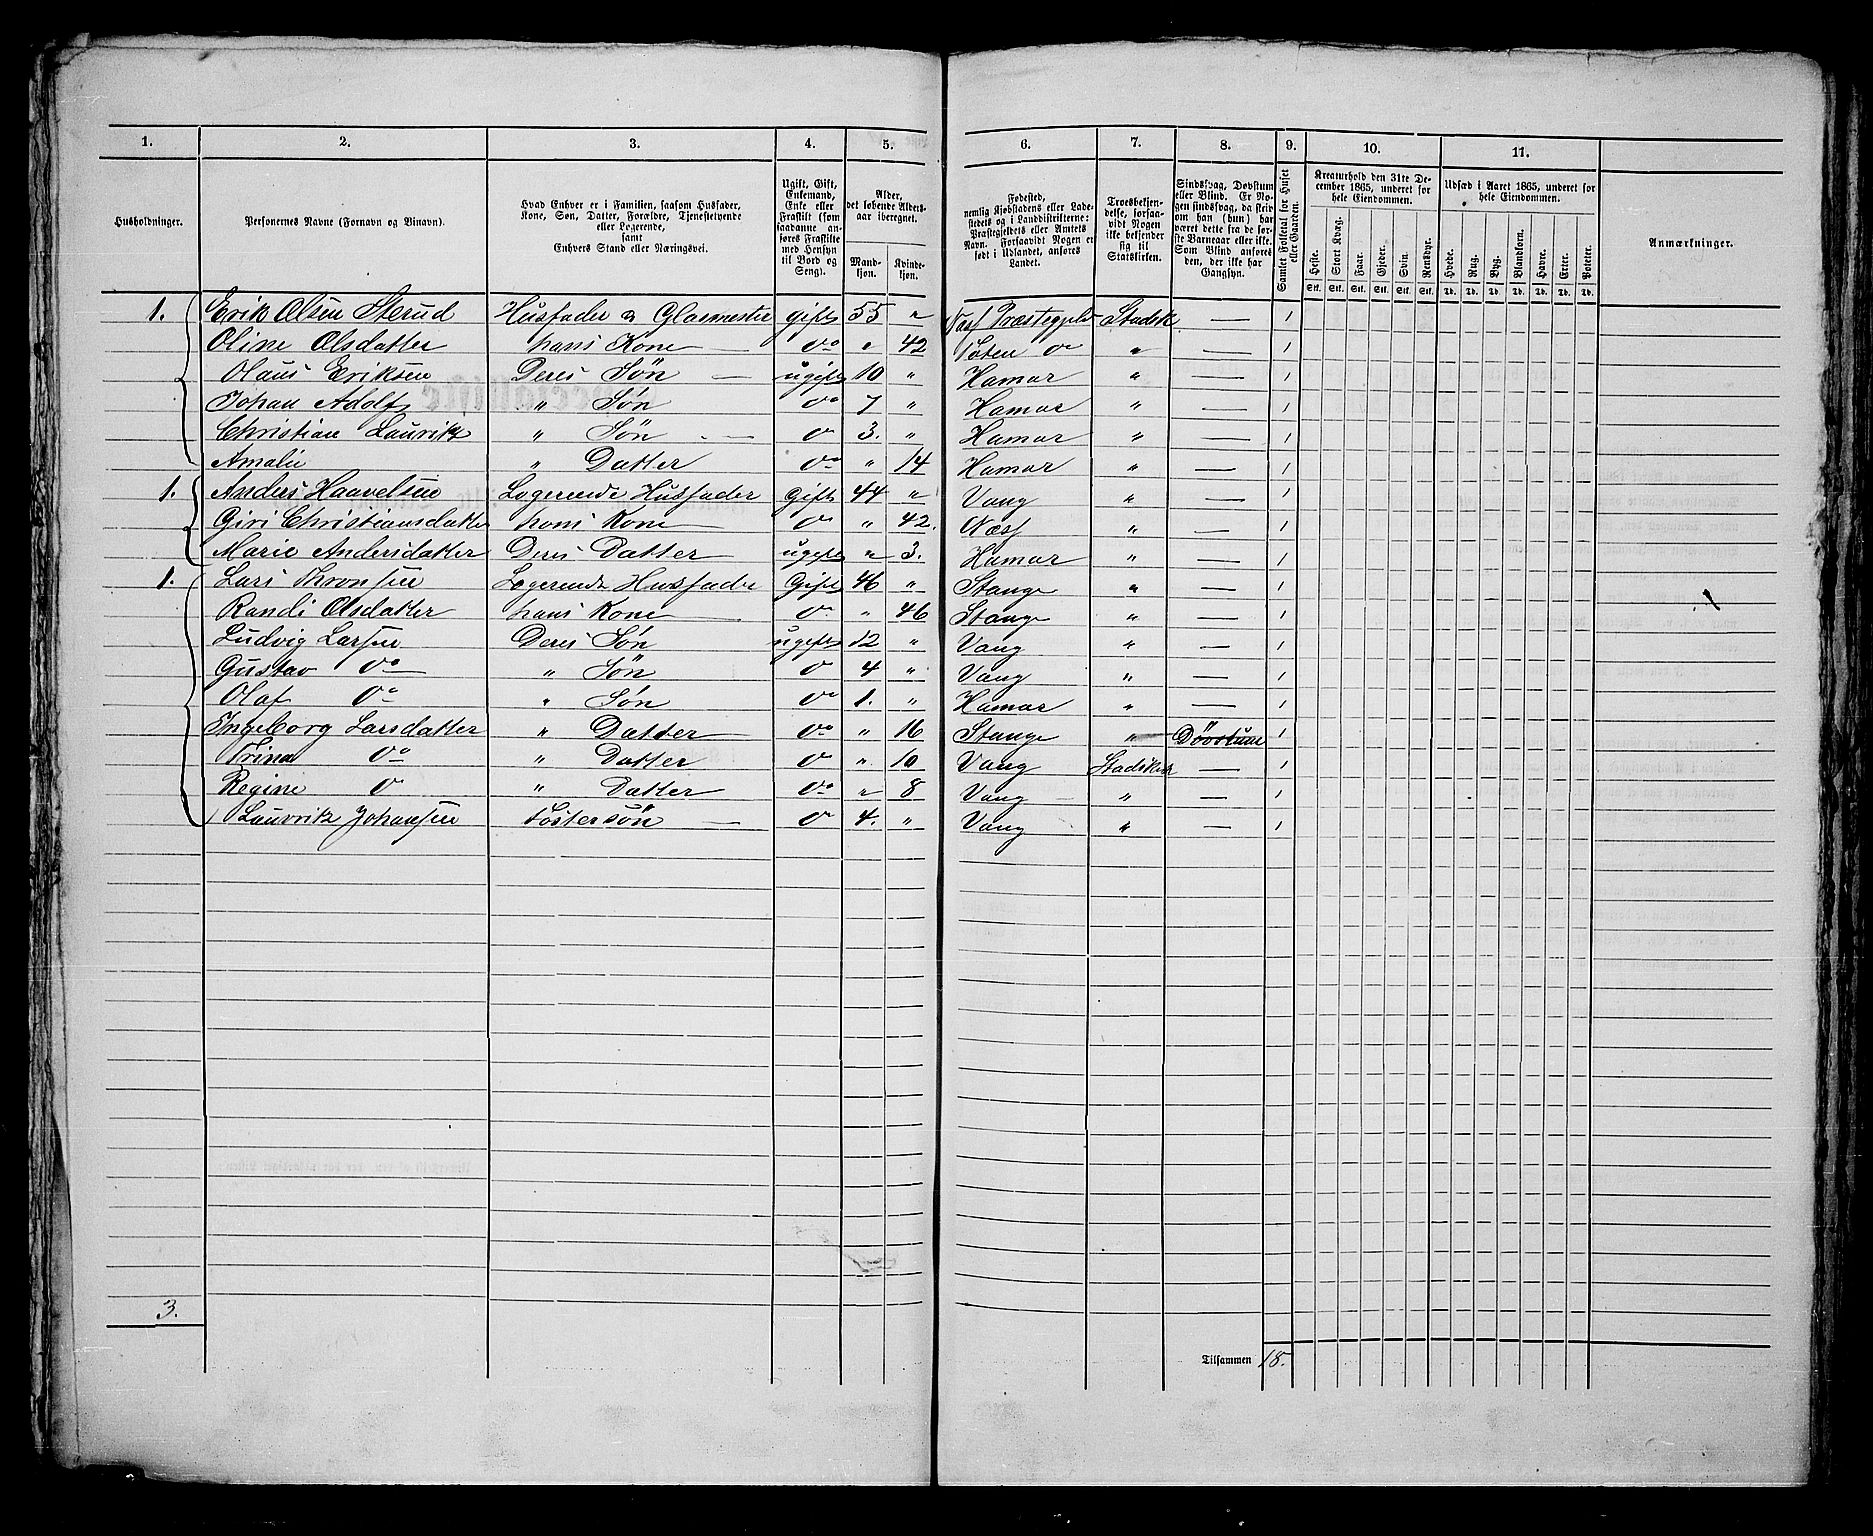 1. 2. 3. 4. 5. 6. 7. 8. 9. 10. 11.
Husholdninger.
Personernes Navne (Fornavn og Binavn).
Hvad Enhver er i Familien, saasom Husfader,
Kone, Søn, Datter, Forældre, Tjenestetyende
eller Logerende,
samt
Enhvers Stand eller Næringsvei.
Ugift, Gift,
Enkemand,
Enke eller
Fraskilt (som
saadanne an-
føres Fraskilte
med Hensyn
til Bord og
Seng).
Alder,
det løbende Alders-
aar iberegnet.
Mand-
kjøn.
Kvinde-
kjøn.
Fødested,
nemlig Kjøbstadens eller Lade-
stedets og i Landdistrikterne:
Præstegjeldets eller Amtets
Navn. Forsaavidt Nogen er
født i Udlandet, anføres
Landet.
Troesbekjen-
delse, forsaa-
vidt Nogen
ikke bekjender
sig til
Statskirken.
Sindssvag, Døvstum
eller Blind. Er No-
gen sindssvag, da skriv
om han (hun) har
været dette fra de før-
ste Barneaar eller ikke.
Som Blind anføres
den, der ikke har
Gangsyn.
Samlet Folketal for Huset
eller Gaarden.
Kreaturhold den 31te De-
cember 1865, underet for
hele Eiendommen.
Heste. Stort Kvæg. Faar. Gjeder. Svin. Rensdyr.
Stk. Stk. Stk. Stk. Stk. Stk.
Udsæd i Aaret 1865, underet for
hele Eiendommen.
Hvede. Rug. Byg. Blandkorn. Havre. Erter. Poteter.
Td. Td. Td. Td. Td. Td. Td.
Anmærkninger.
1. Erik Olsen Sterud Husfader & Glasmester gift 55 " Næss Præstegjeld Statsk — 1
Oline Olsdatter hans Kone do " 42 Toten do " — 1
Olaus Eriksen Deres Søn ugift 10 " Hamar " — 1
Johan Adolf " Søn do 7 " Hamar " — 1
Christian Lauritz " Søn do 3. " Hamar " — 1
Amalie " Datter do " 14 Hamar " — 1
1. Anders Haavelsen Logerende Husfader Gift 44 " Vang " — 1
Giri Christiansdatter hans Kone do " 42. Næss " — 1
Marie Andersdatter Deres Datter ugift " 3. Hamar " — 1
1. Lars Thronsen Logerende Husfader Gift 46 " Stange " — 1
Randi Olsdatter hans Kone do " 46 Stange " — 1
Ludvig Larsen Deres Søn ugift 12 " Vang " — 1
Gustav do " Søn do 4 " Vang " — 1
Olaf do " Søn do 1. " Hamar " — 1
Ingeborg Larsdatter " Datter do " 16 Stange " Døvstum 1
Trina do " Datter do " 10 Vang Statskirk — 1
Regine do " Datter do " 8 Vang " — 1
Lauvritz Johansen Fostersøn do 4. " Vang " — 1
3.
Tilsammen 18.